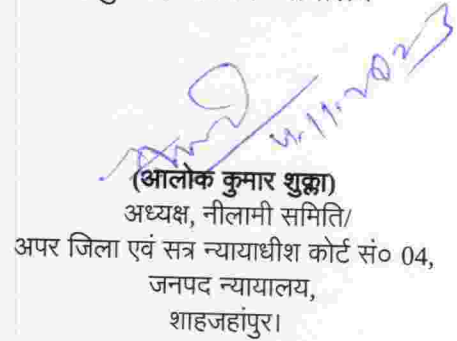 4.11.2023
(आलोक कुमार शुक्ला)
अध्यक्ष, नीलामी समिति/
अपर जिला एवं सत्र न्यायाधीश कोर्ट सं० 04,
जनपद न्यायालय,
शाहजहांपुर।